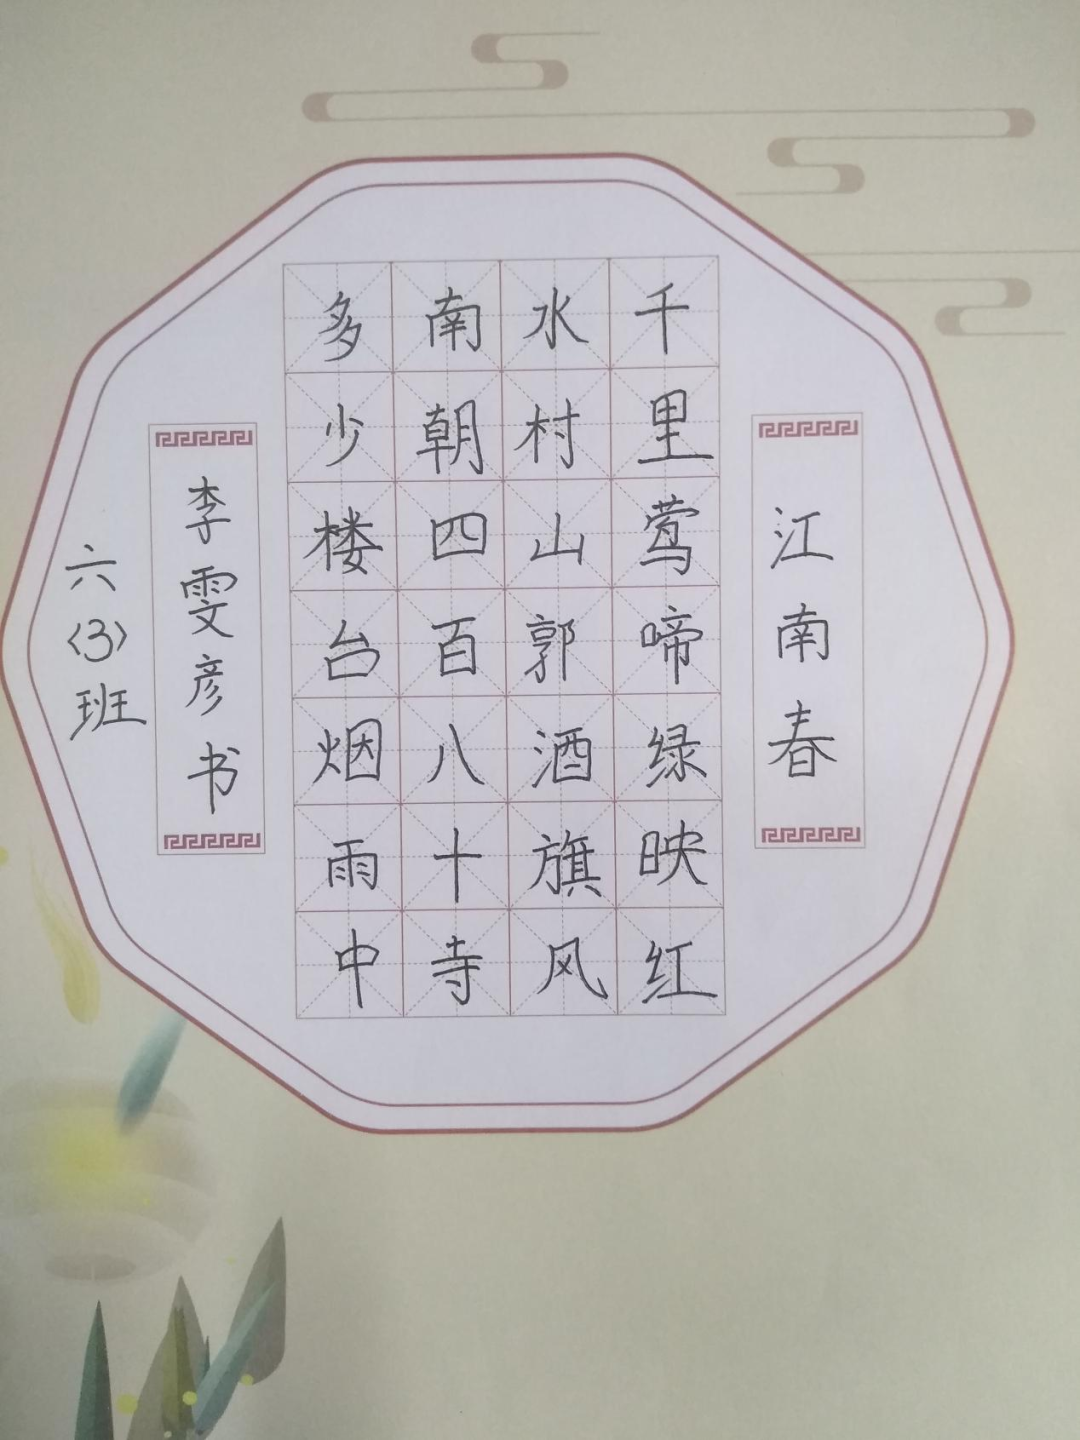 江南春
千里莺啼绿映红
水村山郭酒旗风
南朝四百八十寺
多少楼台烟雨中
李雯彦书
六〈3〉班